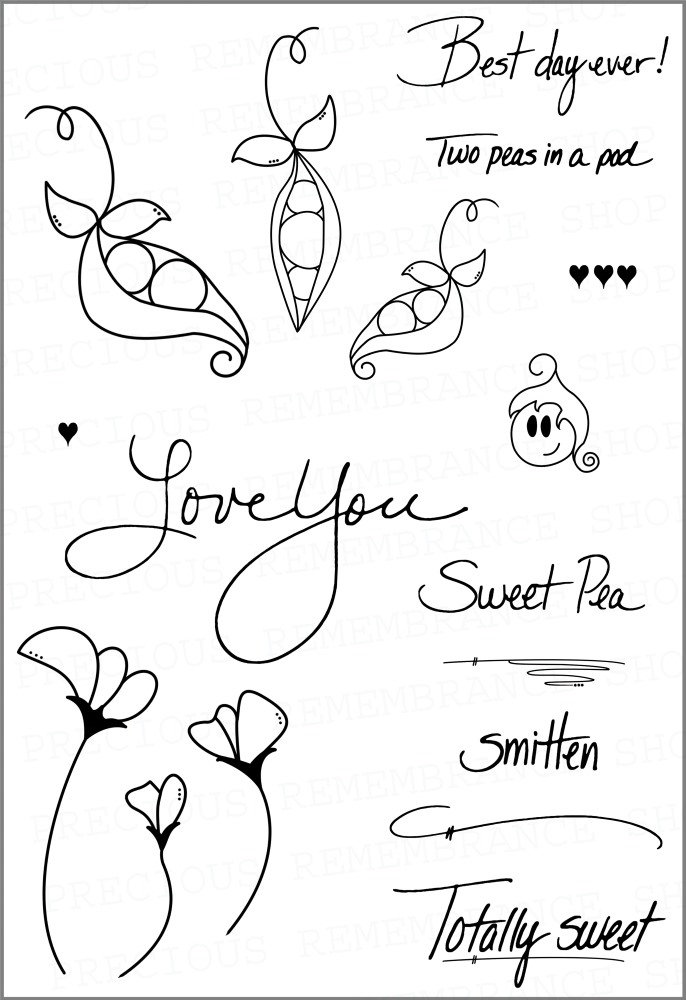 Best day ever!
Two peas in a pod
Love You
Sweet Pea
Smitten
Totally sweet
PRECIOUS REMEMBRANCE SHOP